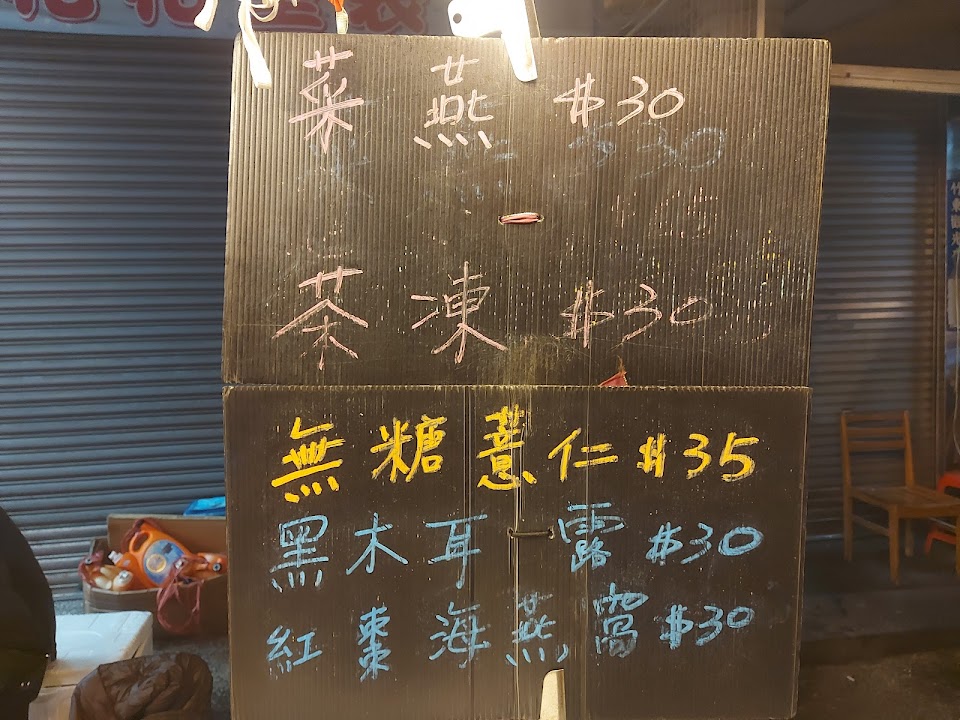 菜燕 $30
茶凍 $30
無糖薏仁 $35
黑木耳露 $30
紅棗海燕窩 $30